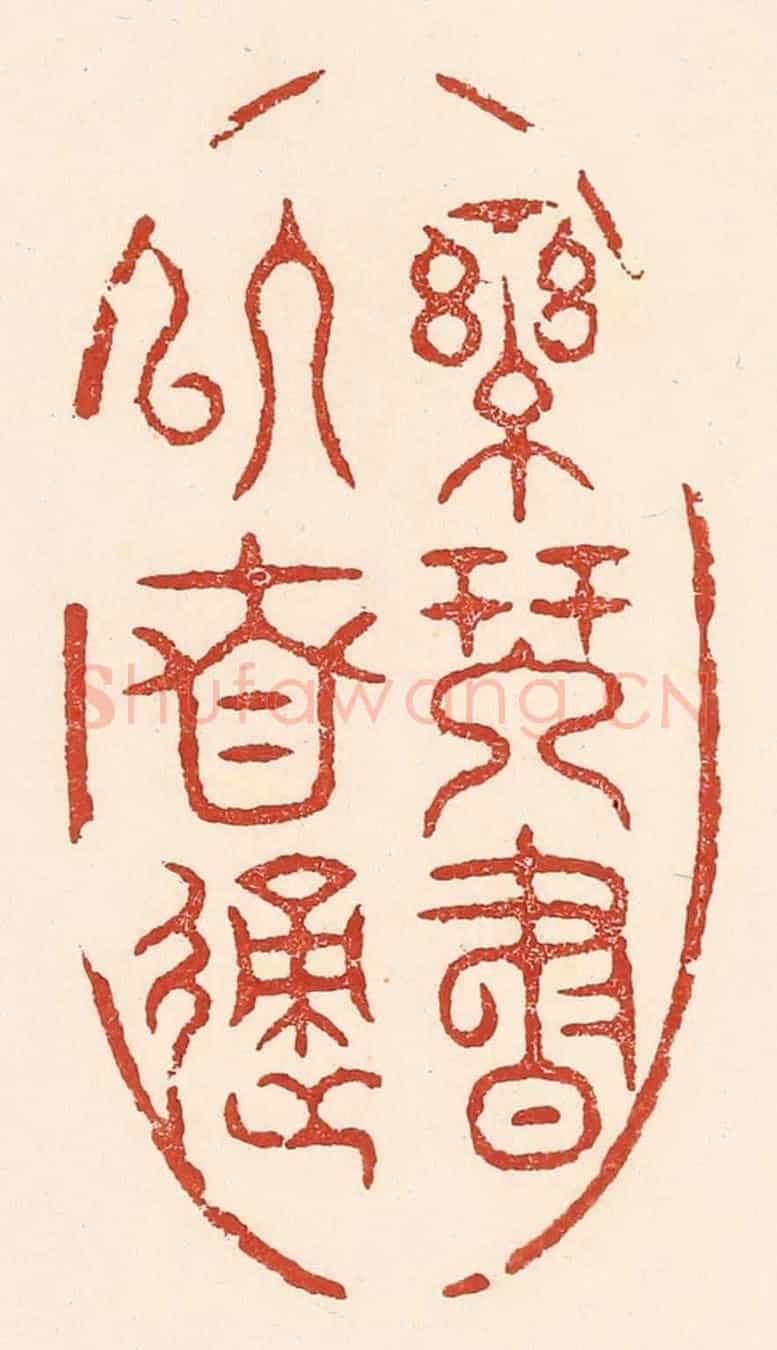 樂琴書
以消憂
Shufawang.CN